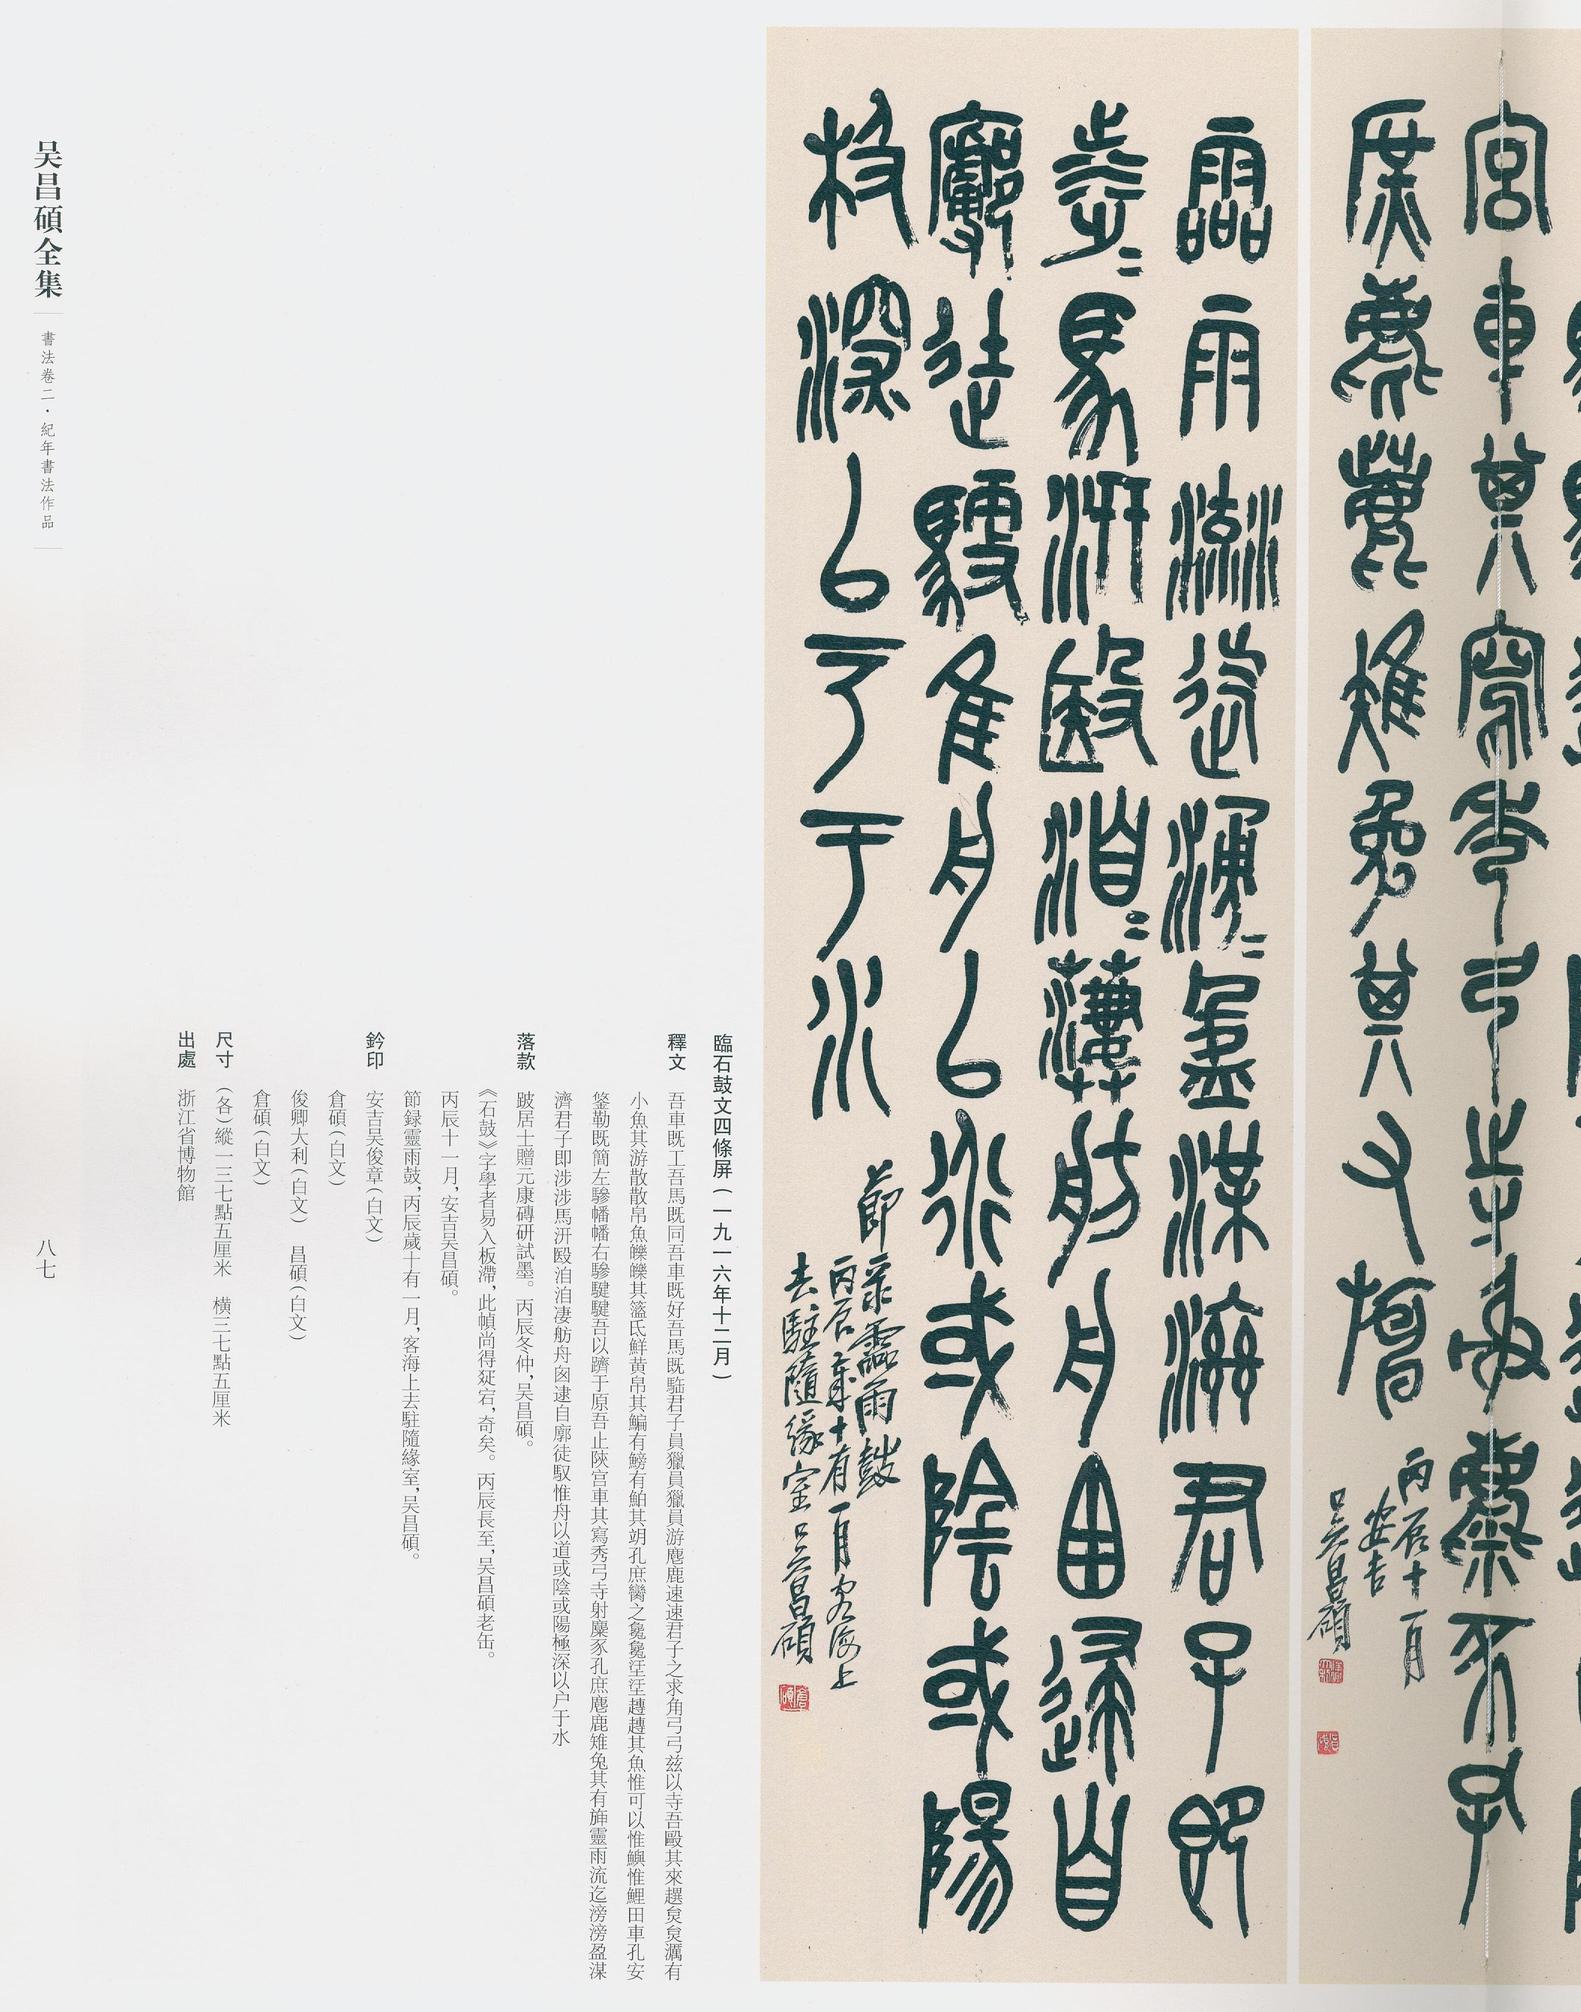 宮車其寫秀弓寺射麋豕孔
庶麀鹿雉兔其又
丙辰十一月
安吉
吴昌碩
霝雨流迄滂=盈渫濟君子即
涉=馬汧殹洎=萋舫舟囱逮自
廓徒馭隹舟以行或陰或陽
极深以户于水
節录霝雨鼓
丙辰歲十有一月客海上
去駐隨緣室吴昌碩
倉碩
臨石鼓文四條屏(一九一六年十二月)
釋文 吾車既工吾馬既同吾車既好吾馬既䮲君子員獵員獵員游麀鹿速速君子之求角弓弓兹以寺吾毆其來趩炱炱澫有
小魚其游散散帛魚皪皪其盜氐鮮黄帛其鯿有鰟有鮊其朔孔庶臠之毚毚汪汪趬趬其魚惟可以惟鱮惟鯉田車孔安
鋚勒既簡左驂幡幡右驂騝騝吾以隮于原吾止陝宫車其寫秀弓寺射麋豕孔庶麀鹿雉兔其有旃靈雨流迄滂滂盈渫
濟君子即涉涉馬汧殹洎洎凄舫舟囱逮自廓徒馭惟舟以道或陰或陽極深以户于水
落款 跛居士贈元康磚研試墨。丙辰冬仲,吴昌碩。
《石鼓》字學者易入板滯,此幀尚得烻宕,奇矣。丙辰長至,吴昌碩老缶。
丙辰十一月,安吉吴昌碩。
節録靈雨鼓,丙辰歲十有一月,客海上去駐隨緣室,吴昌碩。
鈐印 安吉吴俊章(白文)
倉碩(白文)
俊卿大利(白文) 昌碩(白文)
倉碩(白文)
尺寸 (各)縱一三七點五厘米 橫三七點五厘米
出處 浙江省博物館
吴昌碩全集
書法卷二·紀年書法作品
八七